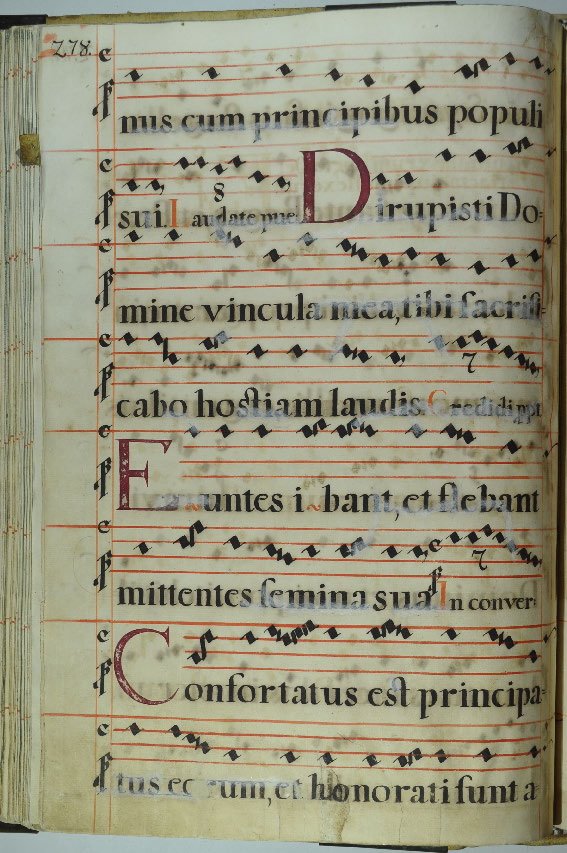 278.
nus cum principibus populi
8
sui. Laudate pue. Dirupisti Do=
mine vincula mea, tibi sacrifi=
7
cabo hostiam laudis. Credidi, ppt
Euntes i~bant, et flebant
7
mittentes semina sua. In conver:
Confortatus est principa=
tus eorum, et honorati sunt a